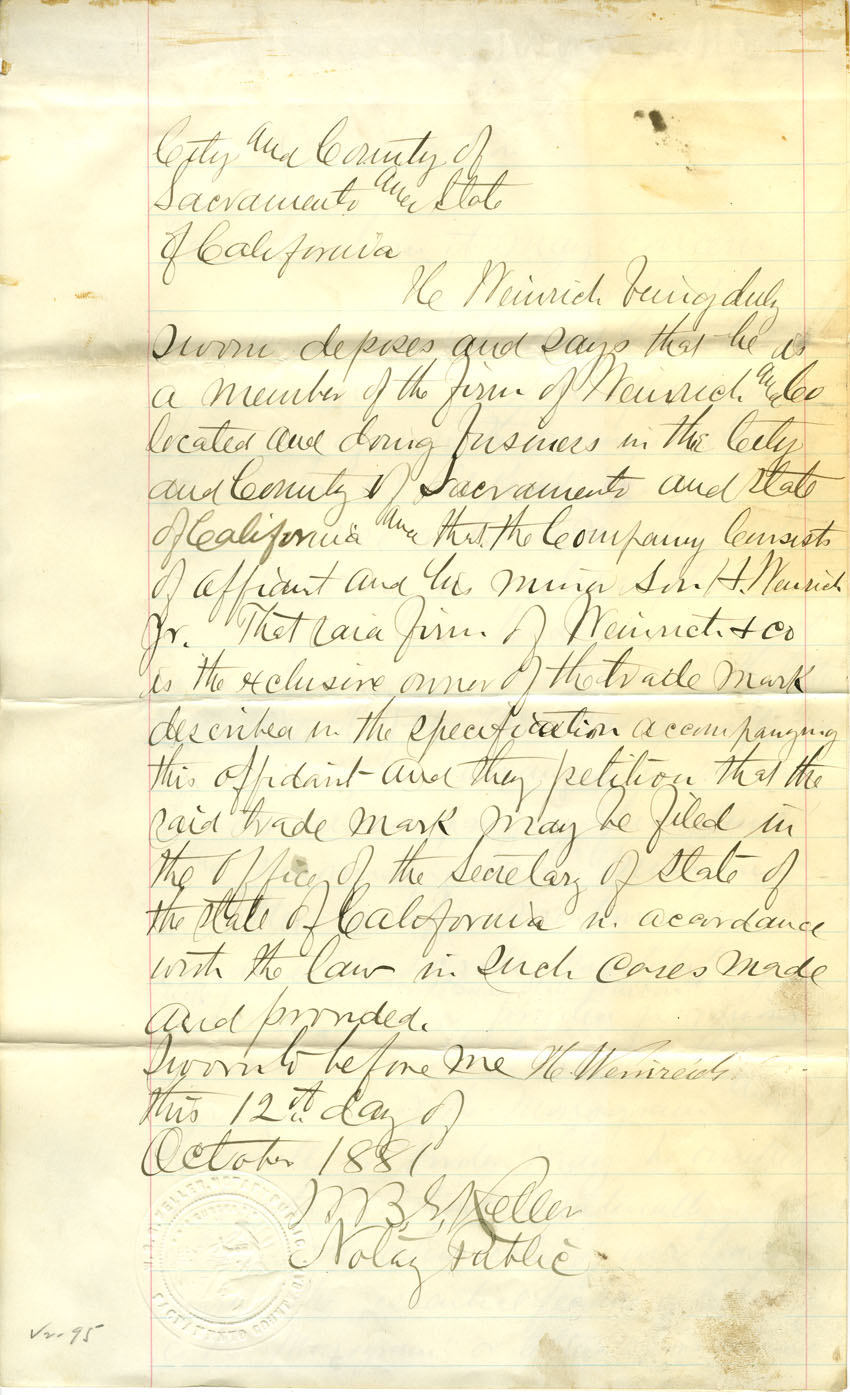 City and County of
Sacramento and State
of California
H Weinrich being duly
sworn deposes and says that he is
a member of the firm of Weinrich and Co
located and doing business in the City
and County of Sacramento and State
of California and that the Company Consists
of affiant and his minor son H. Weinrich
Jr. That said firm of Weinrich & Co
is the exclusive owner of the trade mark
described in the specification accompanying
this affidavit and they petition that the
said trade mark may be filed in
the Office of the Secretary of State of
the State of California in acordance
with the law in such cases made
and provided.
Sworn to before me H. Weinreich
this 12th day of
October 1881
Keller
Notary Public
NOTARY PUBLIC
SACRAMENTO COUNTY
95